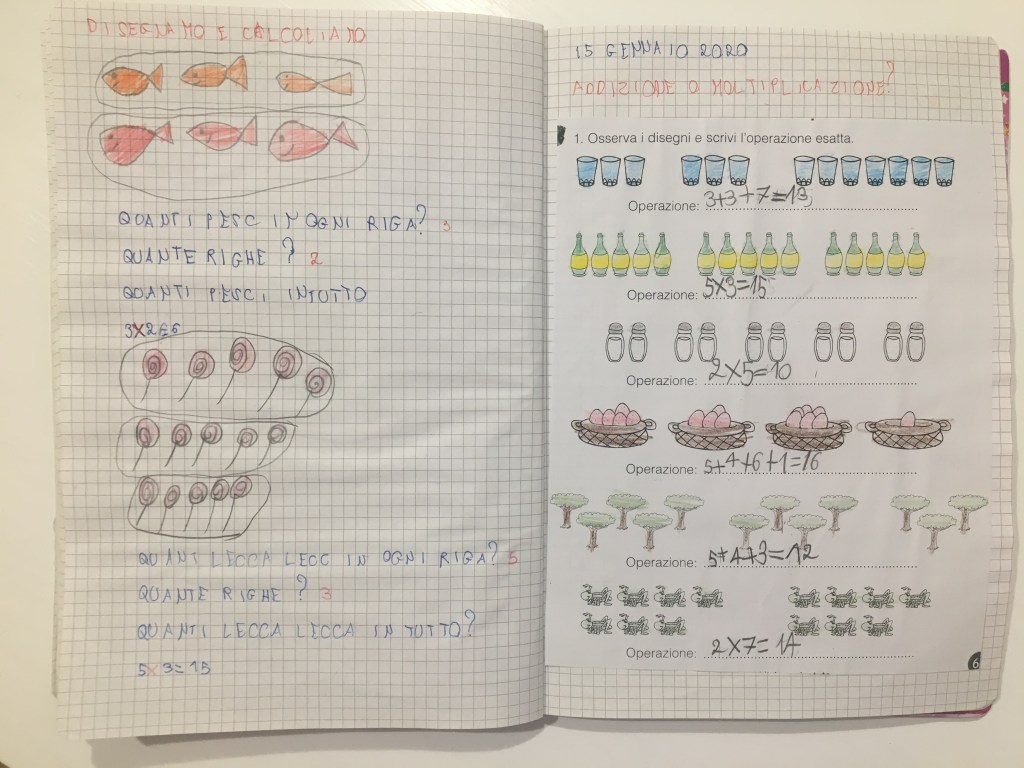 DISEGNAMO E CALCOLIAMO
QUANTI PESC IN OGNI RIGA? 3
QUANTE RIGHE? 2
QUANTI PESCI INTUTTO
3X2=6
QUANTI LECCA LECC IN OGNI RIGA? 5
QUANTE RIGHE? 3
QUANTI LECCA LECCA IN TUTTO?
5X3=15
15 GENNAIO 2020
ADDIZIONE O MOLTIPLICAZIONE?
1. Osserva i disegni e scrivi l'operazione esatta.
Operazione: 3+3+7=13
Operazione: 5X3=15
Operazione: 2X5=10
Operazione: 5+4+6+1=16
Operazione: 5+4+3=12
Operazione: 2X7=14
6